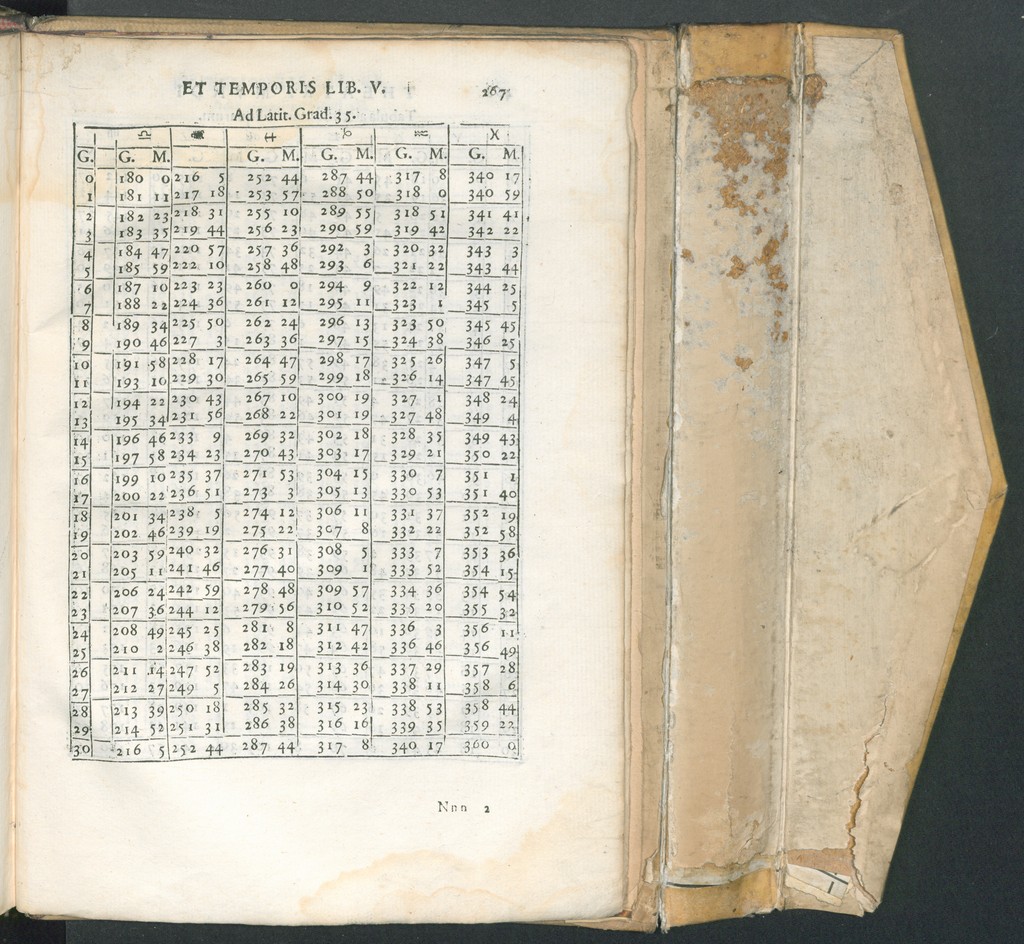 ET TEMPORIS LIB. V. 267
Ad Latit. Grad. 35.
♎ ♏ ♐ ♑ ♒ ♓
G. G. M. G. M. G. M. G. M. G. M.
0 180 0 216 5 252 44 287 44 317 8 340 17
1 181 11 217 18 253 57 288 50 318 0 340 59
2 182 23 218 31 255 10 289 55 318 51 341 41
3 183 35 219 44 256 23 290 59 319 42 342 22
4 184 47 220 57 257 36 292 3 320 32 343 3
5 185 59 222 10 258 48 293 6 321 22 343 44
6 187 10 223 23 260 0 294 9 322 12 344 25
7 188 22 224 36 261 12 295 11 323 1 345 5
8 189 34 225 50 262 24 296 13 323 50 345 45
9 190 46 227 3 263 36 297 15 324 38 346 25
10 191 58 228 17 264 47 298 17 325 26 347 5
11 193 10 229 30 265 59 299 18 326 14 347 45
12 194 22 230 43 267 10 300 19 327 1 348 24
13 195 34 231 56 268 22 301 19 327 48 349 4
14 196 46 233 9 269 32 302 18 328 35 349 43
15 197 58 234 23 270 43 303 17 329 21 350 22
16 199 10 235 37 271 53 304 15 330 7 351 1
17 200 22 236 51 273 3 305 13 330 53 351 40
18 201 34 238 5 274 12 306 11 331 37 352 19
19 202 46 239 19 275 22 307 8 332 22 352 58
20 203 59 240 32 276 31 308 5 333 7 353 36
21 205 11 241 46 277 40 309 1 333 52 354 15
22 206 24 242 59 278 48 309 57 334 36 354 54
23 207 36 244 12 279 56 310 52 335 20 355 32
24 208 49 245 25 281 8 311 47 336 3 356 11
25 210 2 246 38 282 18 312 42 336 46 356 49
26 211 14 247 52 283 19 313 36 337 29 357 28
27 212 27 249 5 284 26 314 30 338 11 358 6
28 213 39 250 18 285 32 315 23 338 53 358 44
29 214 52 251 31 286 38 316 16 339 35 359 22
30 216 5 252 44 287 44 317 8 340 17 360 0
Nnn 2